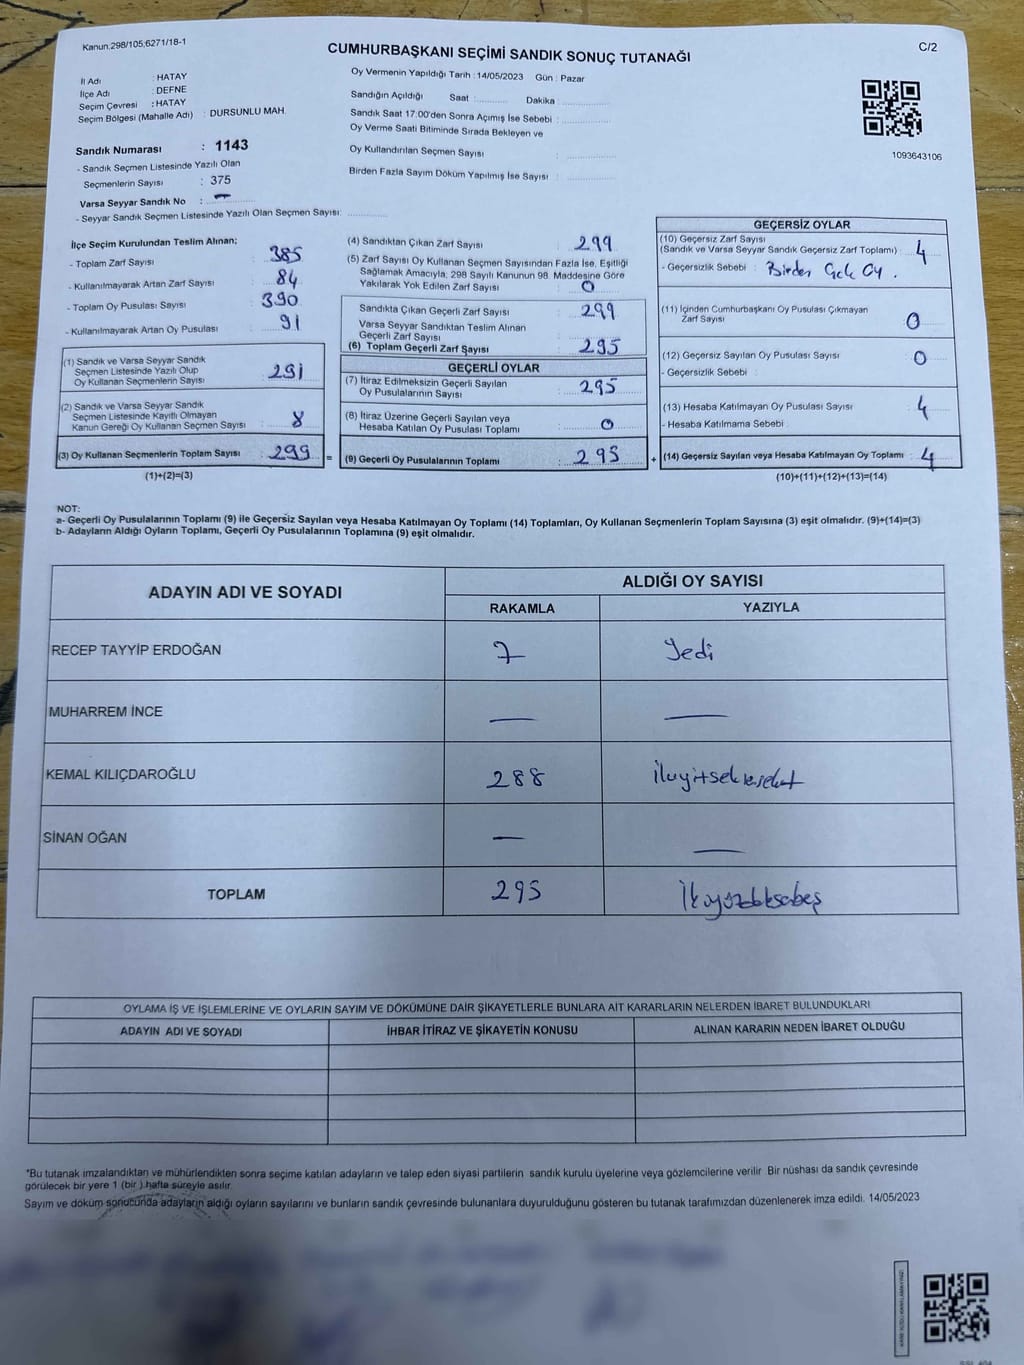 Kanun.298/105;6271/18-1
CUMHURBAŞKANI SEÇİMİ SANDIK SONUÇ TUTANAĞI
C/2
İl Adı : HATAY
İlçe Adı : DEFNE
Seçim Çevresi : HATAY
Seçim Bölgesi (Mahalle Adı) : DURSUNLU MAH.
Sandık Numarası : 1143
- Sandık Seçmen Listesinde Yazılı Olan
Seçmenlerin Sayısı : 375
Varsa Seyyar Sandık No : —
- Seyyar Sandık Seçmen Listesinde Yazılı Olan Seçmen Sayısı:
Oy Vermenin Yapıldığı Tarih : 14/05/2023 Gün : Pazar
Sandığın Açıldığı Saat : Dakika :
Sandık Saat 17:00'den Sonra Açımış İse Sebebi :
Oy Verme Saati Bitiminde Sırada Bekleyen ve
Oy Kullandırılan Seçmen Sayısı :
Birden Fazla Sayım Döküm Yapılmış İse Sayısı :
1093643106
İlçe Seçim Kurulundan Teslim Alınan;
- Toplam Zarf Sayısı : 385
- Kullanılmayarak Artan Zarf Sayısı : 84
- Toplam Oy Pusulası Sayısı : 390
- Kullanılmayarak Artan Oy Pusulası : 91
(1) Sandık ve Varsa Seyyar Sandık
Seçmen Listesinde Yazılı Olup
Oy Kullanan Seçmenlerin Sayısı : 291
(2) Sandık ve Varsa Seyyar Sandık
Seçmen Listesinde Kayıtlı Olmayan
Kanun Gereği Oy Kullanan Seçmen Sayısı : 8
(3) Oy Kullanan Seçmenlerin Toplam Sayısı : 299 =
(1)+(2)=(3)
(4) Sandıktan Çıkan Zarf Sayısı : 299
(5) Zarf Sayısı Oy Kullanan Seçmen Sayısından Fazla İse, Eşitliği
Sağlamak Amacıyla; 298 Sayılı Kanunun 98. Maddesine Göre
Yakılarak Yok Edilen Zarf Sayısı : 0
Sandıkta Çıkan Geçerli Zarf Sayısı : 299
Varsa Seyyar Sandıktan Teslim Alınan
Geçerli Zarf Sayısı :
(6) Toplam Geçerli Zarf Sayısı : 295
GEÇERLİ OYLAR
(7) İtiraz Edilmeksizin Geçerli Sayılan
Oy Pusulalarının Sayısı : 295
(8) İtiraz Üzerine Geçerli Sayılan veya
Hesaba Katılan Oy Pusulası Toplamı : 0
(9) Geçerli Oy Pusulalarının Toplamı : 295 +
GEÇERSİZ OYLAR
(10) Geçersiz Zarf Sayısı
(Sandık ve Varsa Seyyar Sandık Geçersiz Zarf Toplamı) : 4
- Geçersizlik Sebebi : Birden Çok Oy.
(11) İçinden Cumhurbaşkanı Oy Pusulası Çıkmayan
Zarf Sayısı : 0
(12) Geçersiz Sayılan Oy Pusulası Sayısı : 0
- Geçersizlik Sebebi :
(13) Hesaba Katılmayan Oy Pusulası Sayısı : 4
- Hesaba Katılmama Sebebi :
(14) Geçersiz Sayılan veya Hesaba Katılmayan Oy Toplamı : 4
(10)+(11)+(12)+(13)=(14)
NOT:
a- Geçerli Oy Pusulalarının Toplamı (9) ile Geçersiz Sayılan veya Hesaba Katılmayan Oy Toplamı (14) Toplamları, Oy Kullanan Seçmenlerin Toplam Sayısına (3) eşit olmalıdır. (9)+(14)=(3)
b- Adayların Aldığı Oyların Toplamı, Geçerli Oy Pusulalarının Toplamına (9) eşit olmalıdır.
ADAYIN ADI VE SOYADI
ALDIĞI OY SAYISI
RAKAMLA YAZIYLA
RECEP TAYYİP ERDOĞAN 7 Yedi
MUHARREM İNCE — —
KEMAL KILIÇDAROĞLU 288
SİNAN OĞAN — —
TOPLAM 295
OYLAMA İŞ VE İŞLEMLERİNE VE OYLARIN SAYIM VE DÖKÜMÜNE DAİR ŞİKAYETLERLE BUNLARA AİT KARARLARIN NELERDEN İBARET BULUNDUKLARI
ADAYIN ADI VE SOYADI İHBAR İTİRAZ VE ŞİKAYETİN KONUSU ALINAN KARARIN NEDEN İBARET OLDUĞU
*Bu tutanak imzalandıktan ve mühürlendikten sonra seçime katılan adayların ve talep eden siyasi partilerin sandık kurulu üyelerine veya gözlemcilerine verilir. Bir nüshası da sandık çevresinde
görülecek bir yere 1 (bir ) hafta süreyle asılır.
Sayım ve döküm sonucunda adayların aldığı oyların sayılarını ve bunların sandık çevresinde bulunanlara duyurulduğunu gösteren bu tutanak tarafımızdan düzenlenerek imza edildi. 14/05/2023